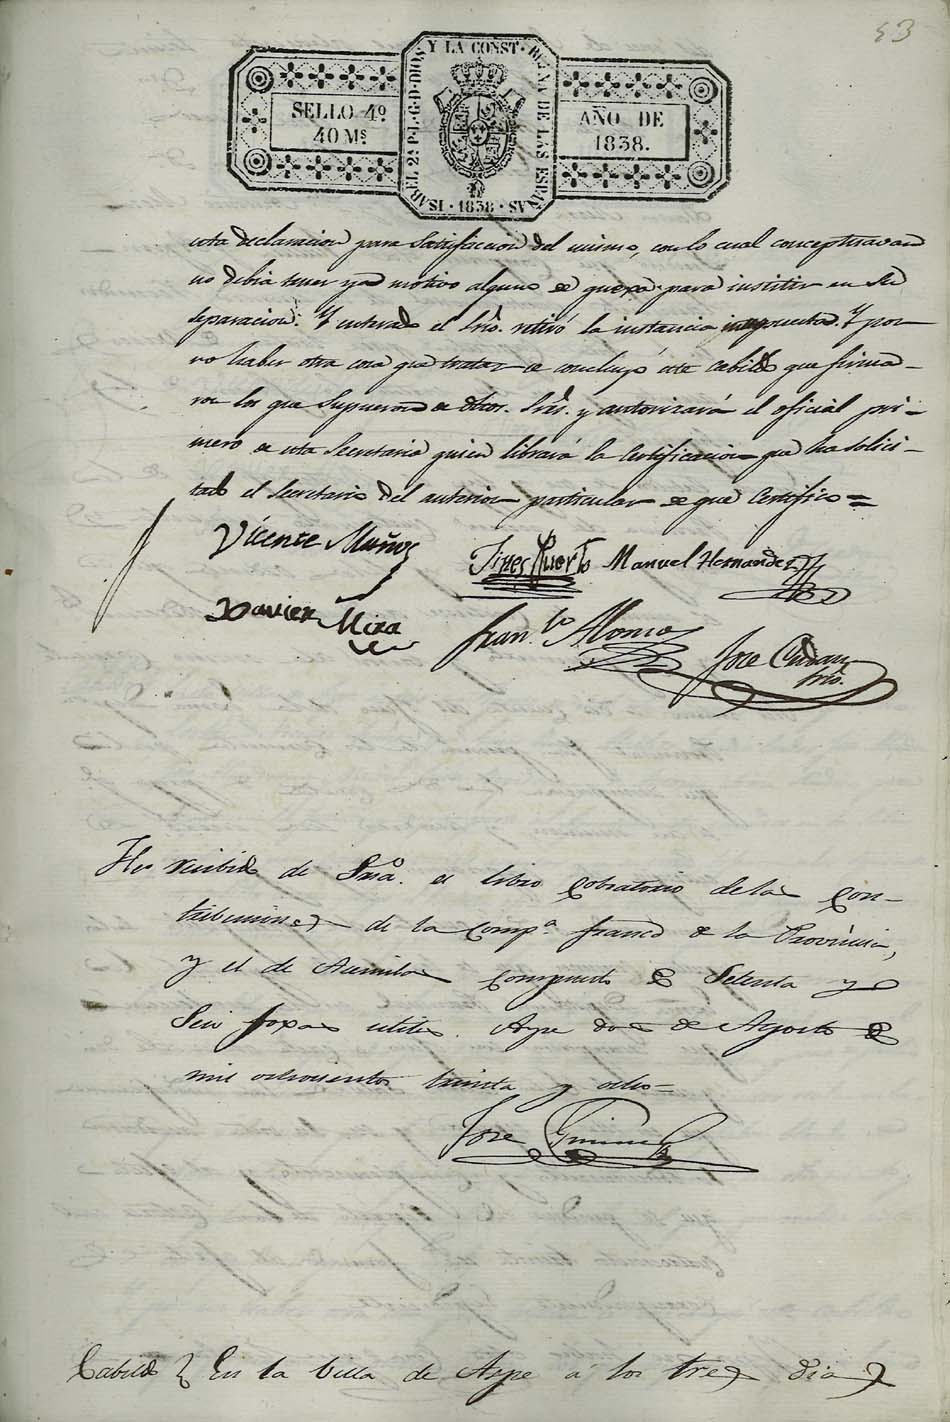 53
SELLO 4º
40 Ms
ISABEL 2ª P. L. G. D. DIOS Y LA CONST. REYNA DE LAS ESPAÑAS
· 1838 ·
AÑO DE
1838.
esta declaracion para satisfaccion del mismo, con lo cual conceptuavan
no debia tener ya motivo alguno de quexa para insistir en su
separacion. Y enterado el Srio. retiró la instancia interpuesta. Y por
no haber otra cosa que tratar se concluyó este cabildo que firma-
ron los que supieron de dhos. Sres. y autorizará el oficial pri-
mero de esta Secretaria quien librará la Certificacion que ha solici-
tado el Secretario del anterior particular de que Certifico =
Vicente Muñoz
Gines Puerto Manuel Hernandez
Xavier Mira
Fran.co Alonso
Jose Cadau
Srio.
He recibido de Sria. el libro cobratorio de las con-
tribuciones de la Comp.a franco de la Provincia,
y el de Aumilla compuesto de Setenta y
Seis foxas utiles. Aspe dos de Agosto de
mil ochocientos treinta y ocho =
Jose Gimenez
Cabildo } En la Villa de Aspe á los tres dias